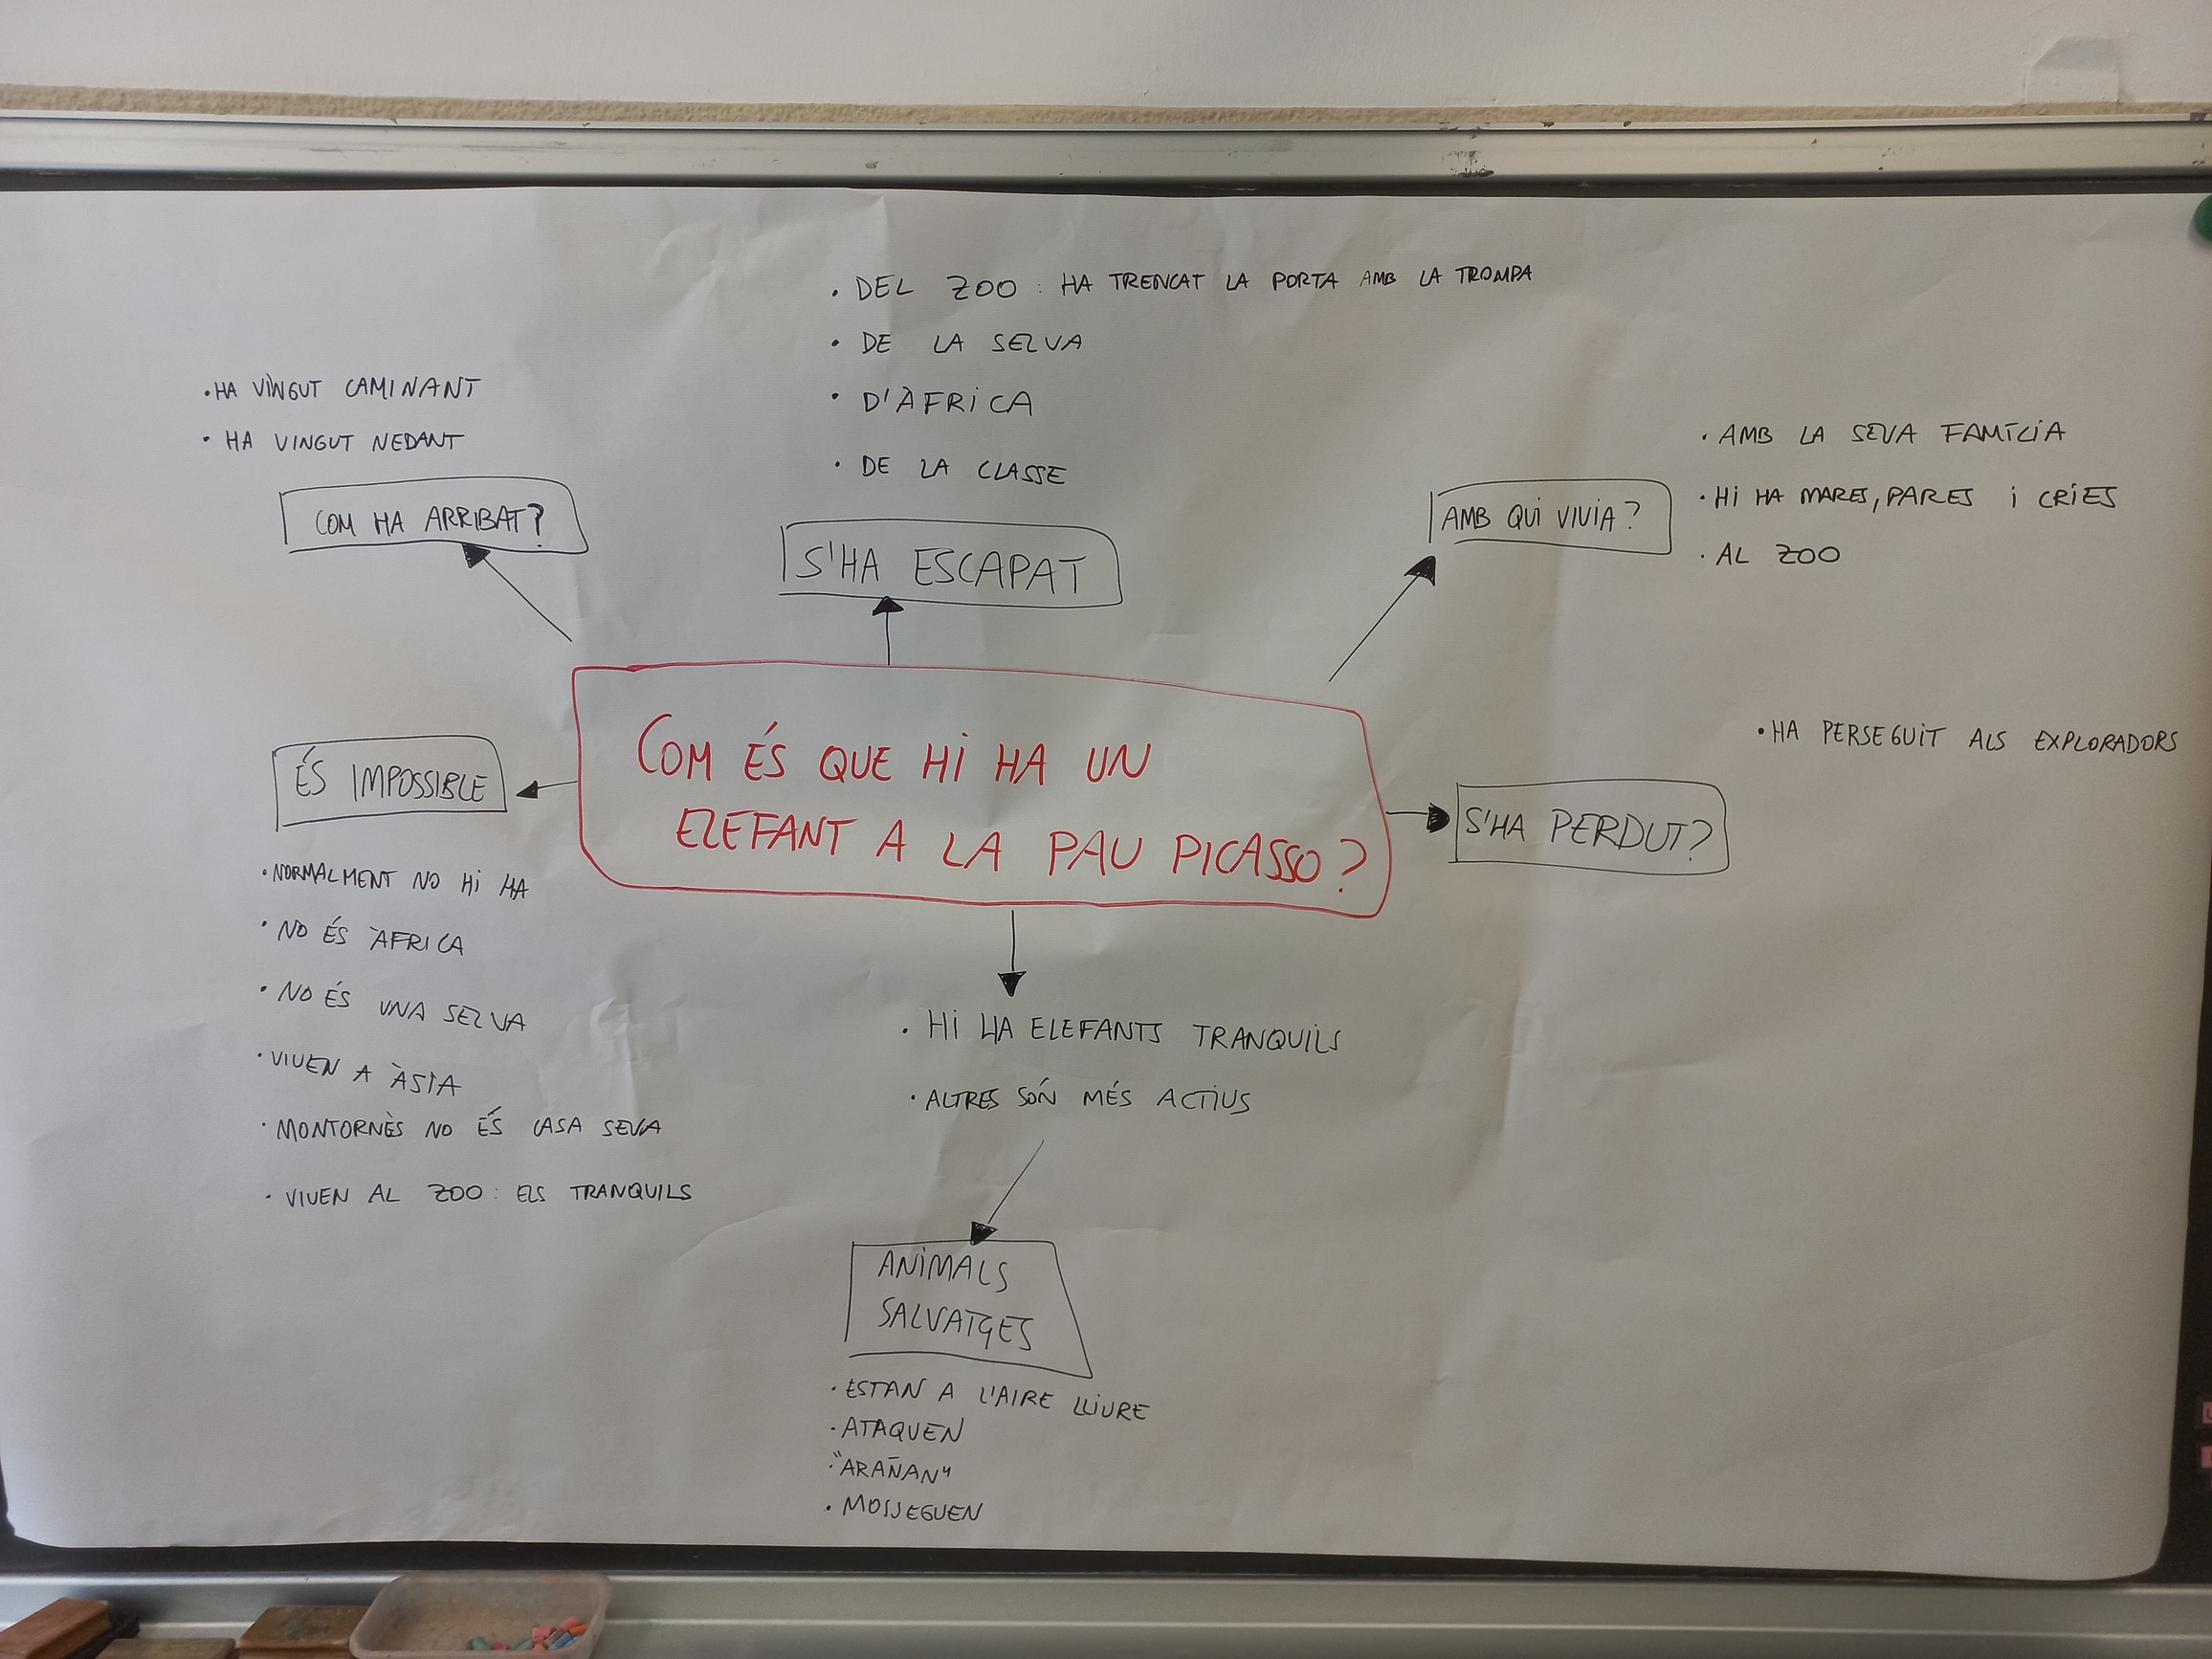 · DEL ZOO : HA TRENCAT LA PORTA AMB LA TROMPA
· DE LA SELVA
· D'ÀFRICA
· DE LA CLASSE
S'HA ESCAPAT
· HA VINGUT CAMINANT
· HA VINGUT NEDANT
COM HA ARRIBAT?
· AMB LA SEVA FAMÍLIA
· HI HA MARES, PARES I CRIES
· AL ZOO
AMB QUI VIVIA?
COM ÉS QUE HI HA UN
ELEFANT A LA PAU PICASSO?
· HA PERSEGUIT ALS EXPLORADORS
S'HA PERDUT?
ÉS IMPOSSIBLE
· NORMALMENT NO HI HA
· NO ÉS ÀFRICA
· NO ÉS UNA SELVA
· VIUEN A ÀSIA
· MONTORNÈS NO ÉS CASA SEVA
· VIUEN AL ZOO : ELS TRANQUILS
· HI HA ELEFANTS TRANQUILS
· ALTRES SÓN MÉS ACTIUS
ANIMALS
SALVATGES
· ESTAN A L'AIRE LLIURE
· ATAQUEN
· "ARAÑAN"
· MOSSEGUEN